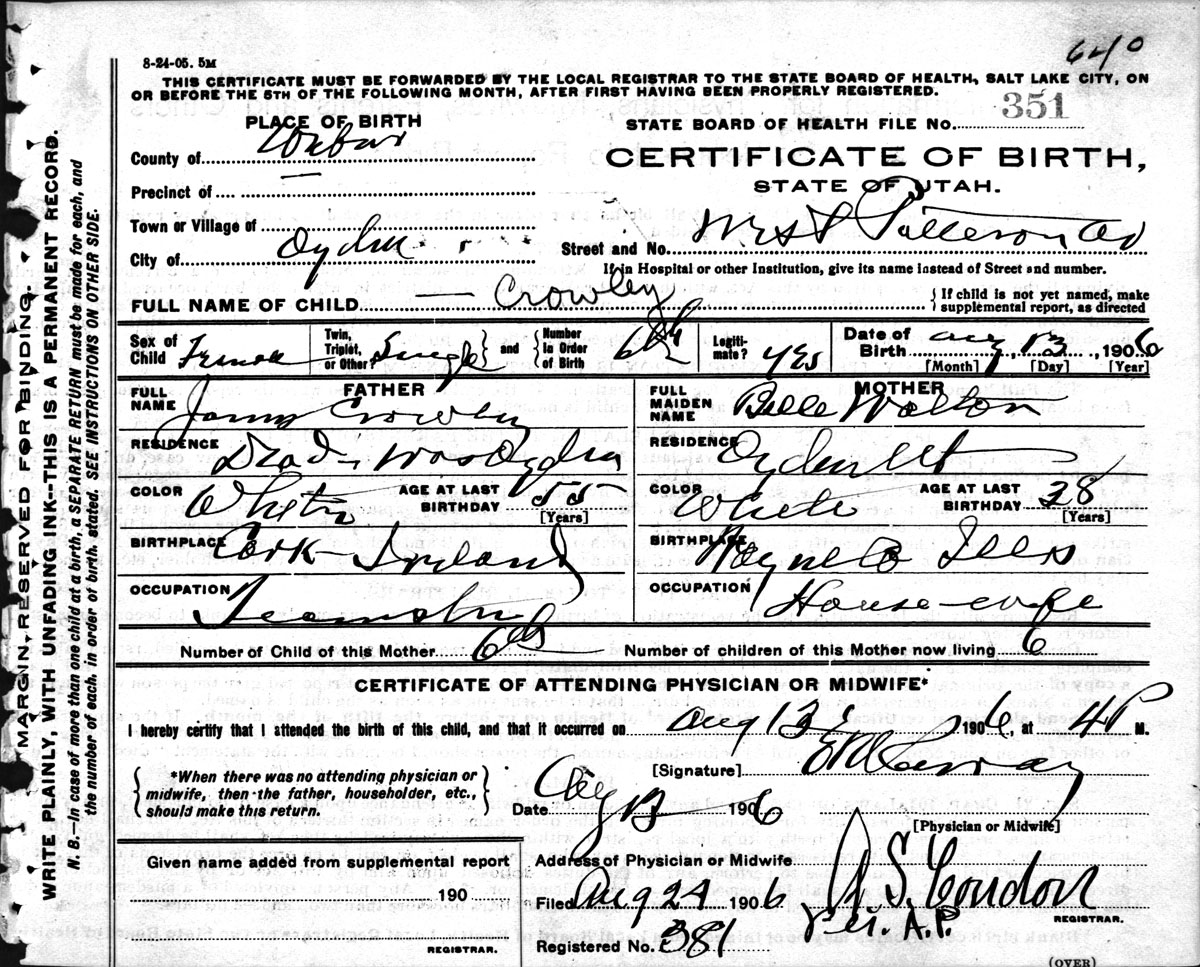 640
8-24-05. 5M
THIS CERTIFICATE MUST BE FORWARDED BY THE LOCAL REGISTRAR TO THE STATE BOARD OF HEALTH, SALT LAKE CITY, ON
OR BEFORE THE 5TH OF THE FOLLOWING MONTH, AFTER FIRST HAVING BEEN PROPERLY REGISTERED.
351
PLACE OF BIRTH
STATE BOARD OF HEALTH FILE NO.
County of Weber
CERTIFICATE OF BIRTH,
STATE OF UTAH.
Precinct of —
Town or Village of
Street and No. West Patterson
City of Ogden
If in Hospital or other Institution, give its name instead of Street and number.
FULL NAME OF CHILD — Crowley
{ If child is not yet named, make
supplemental report, as directed
Sex of Child Female
Twin, Triplet, or Other? Single } and { Number In Order of Birth 6th
Legiti-mate? yes
Date of Birth Aug, 13, 1906
[Month] [Day] [Year]
FATHER
FULL NAME Crowley
RESIDENCE Dead, was Ogden
COLOR White
AGE AT LAST BIRTHDAY 55
[Years]
BIRTHPLACE Cork Ireland
OCCUPATION Teamster
MOTHER
FULL MAIDEN NAME Belle Walton
RESIDENCE Ogden Ut
COLOR White
AGE AT LAST BIRTHDAY 38
[Years]
BIRTHPLACE Wayne Co Ills
OCCUPATION House-wife
Number of Child of this Mother 6th
Number of children of this Mother now living 6
CERTIFICATE OF ATTENDING PHYSICIAN OR MIDWIFE*
I hereby certify that I attended the birth of this child, and that it occurred on Aug 13 1906, at 4 P M.
{ *When there was no attending physician or
midwife, then the father, householder, etc.,
should make this return. }
[Signature]
Date Aug 13 1906
[Physician or Midwife]
Given name added from supplemental report
190
REGISTRAR.
Address of Physician or Midwife
Filed Aug 24 1906
S. Condon
REGISTRAR.
Per. A.P.
Registered No. 381
(OVER)
MARGIN RESERVED FOR BINDING
WRITE PLAINLY, WITH UNFADING INK--THIS IS A PERMANENT RECORD.
N. B.—In case of more than one child at a birth, a SEPARATE RETURN must be made for each, and
the number of each, in order of birth, stated. SEE INSTRUCTIONS ON OTHER SIDE.